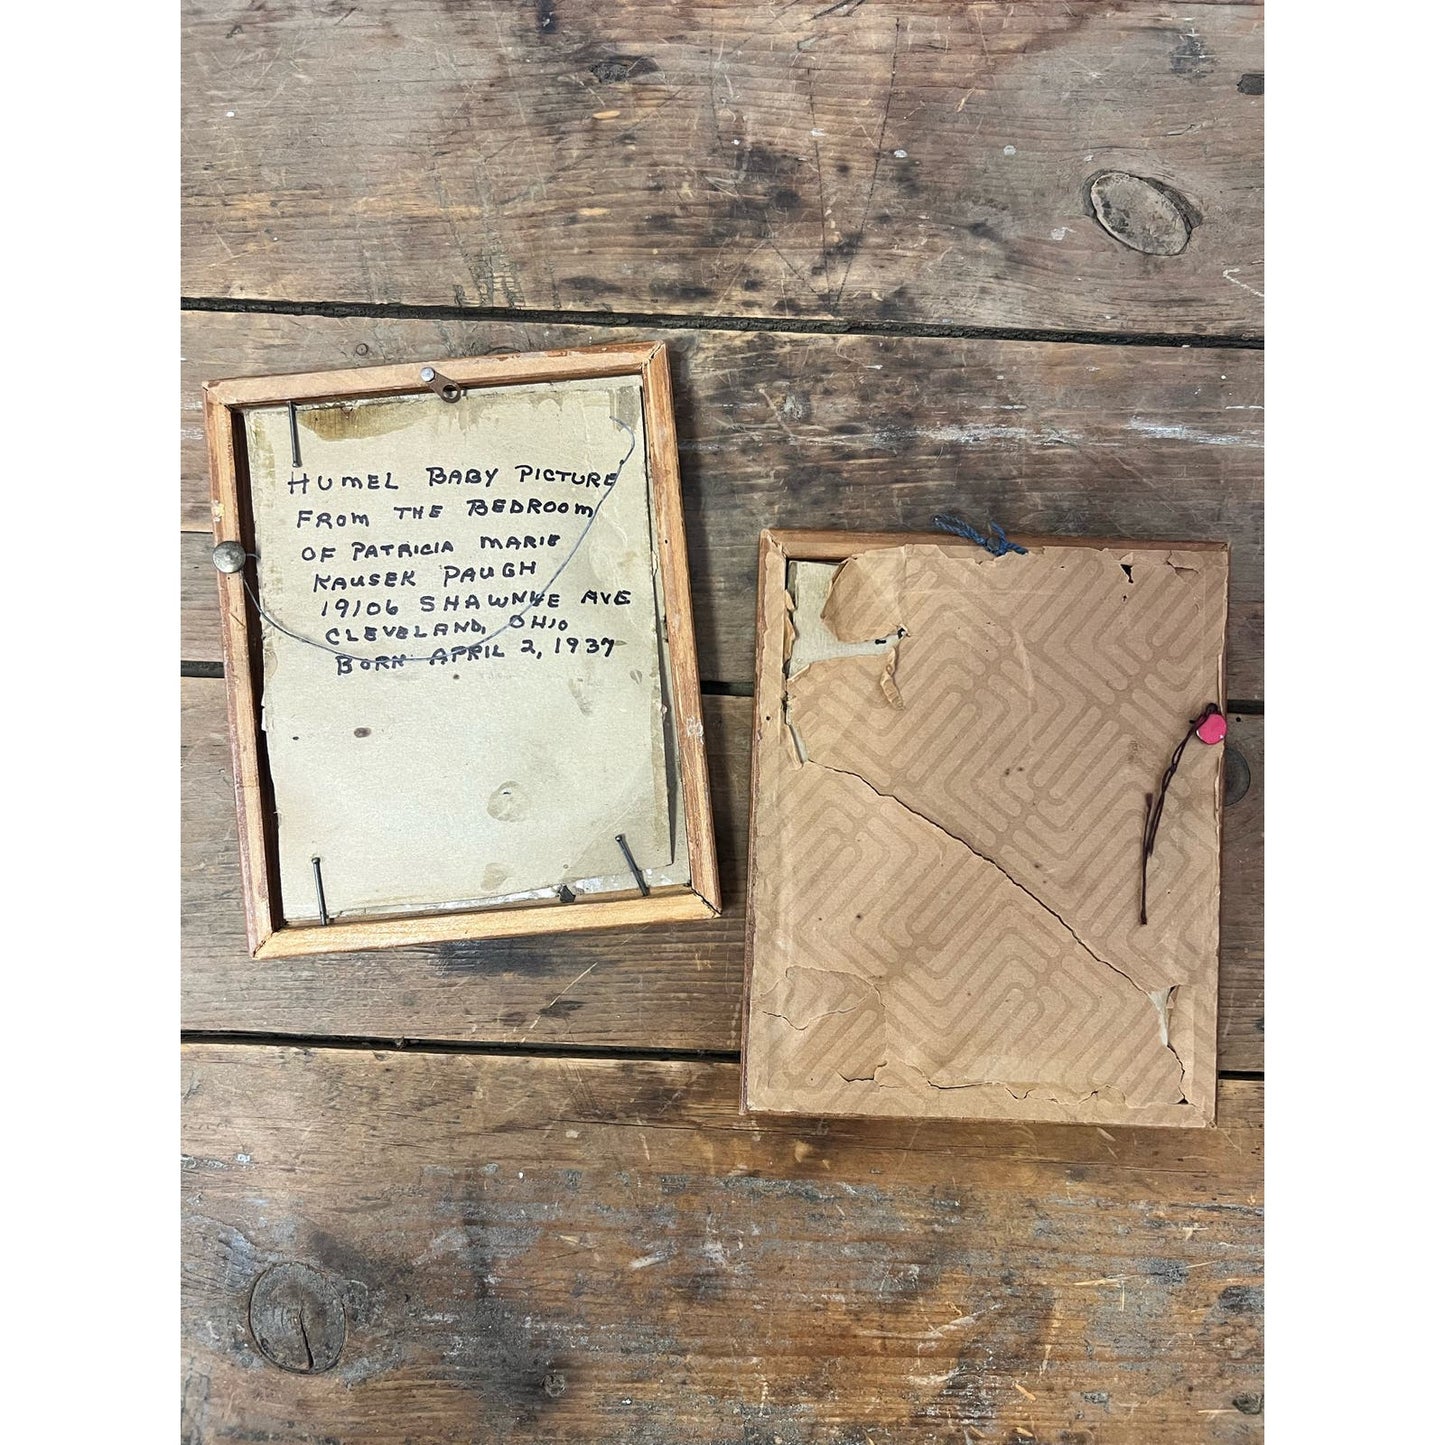 HUMEL BABY PICTURE
FROM THE BEDROOM
OF PATRICIA MARIE
KAUSEK PAUGH
19106 SHAWNEE AVE
CLEVELAND, OHIO
BORN APRIL 2, 1937